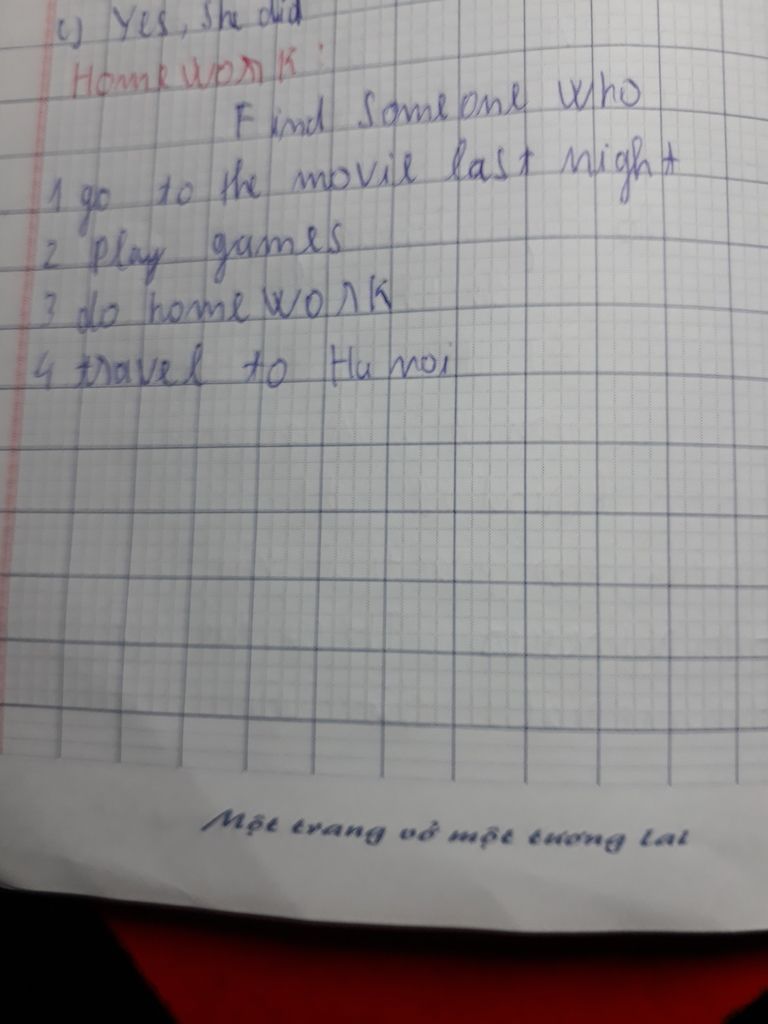 c) Yes, She did
Homework:
Find Someone who
1 go to the movie last night
2 Play games
3 do homework
4 travel to Ha noi
Một trang vở một tương lai